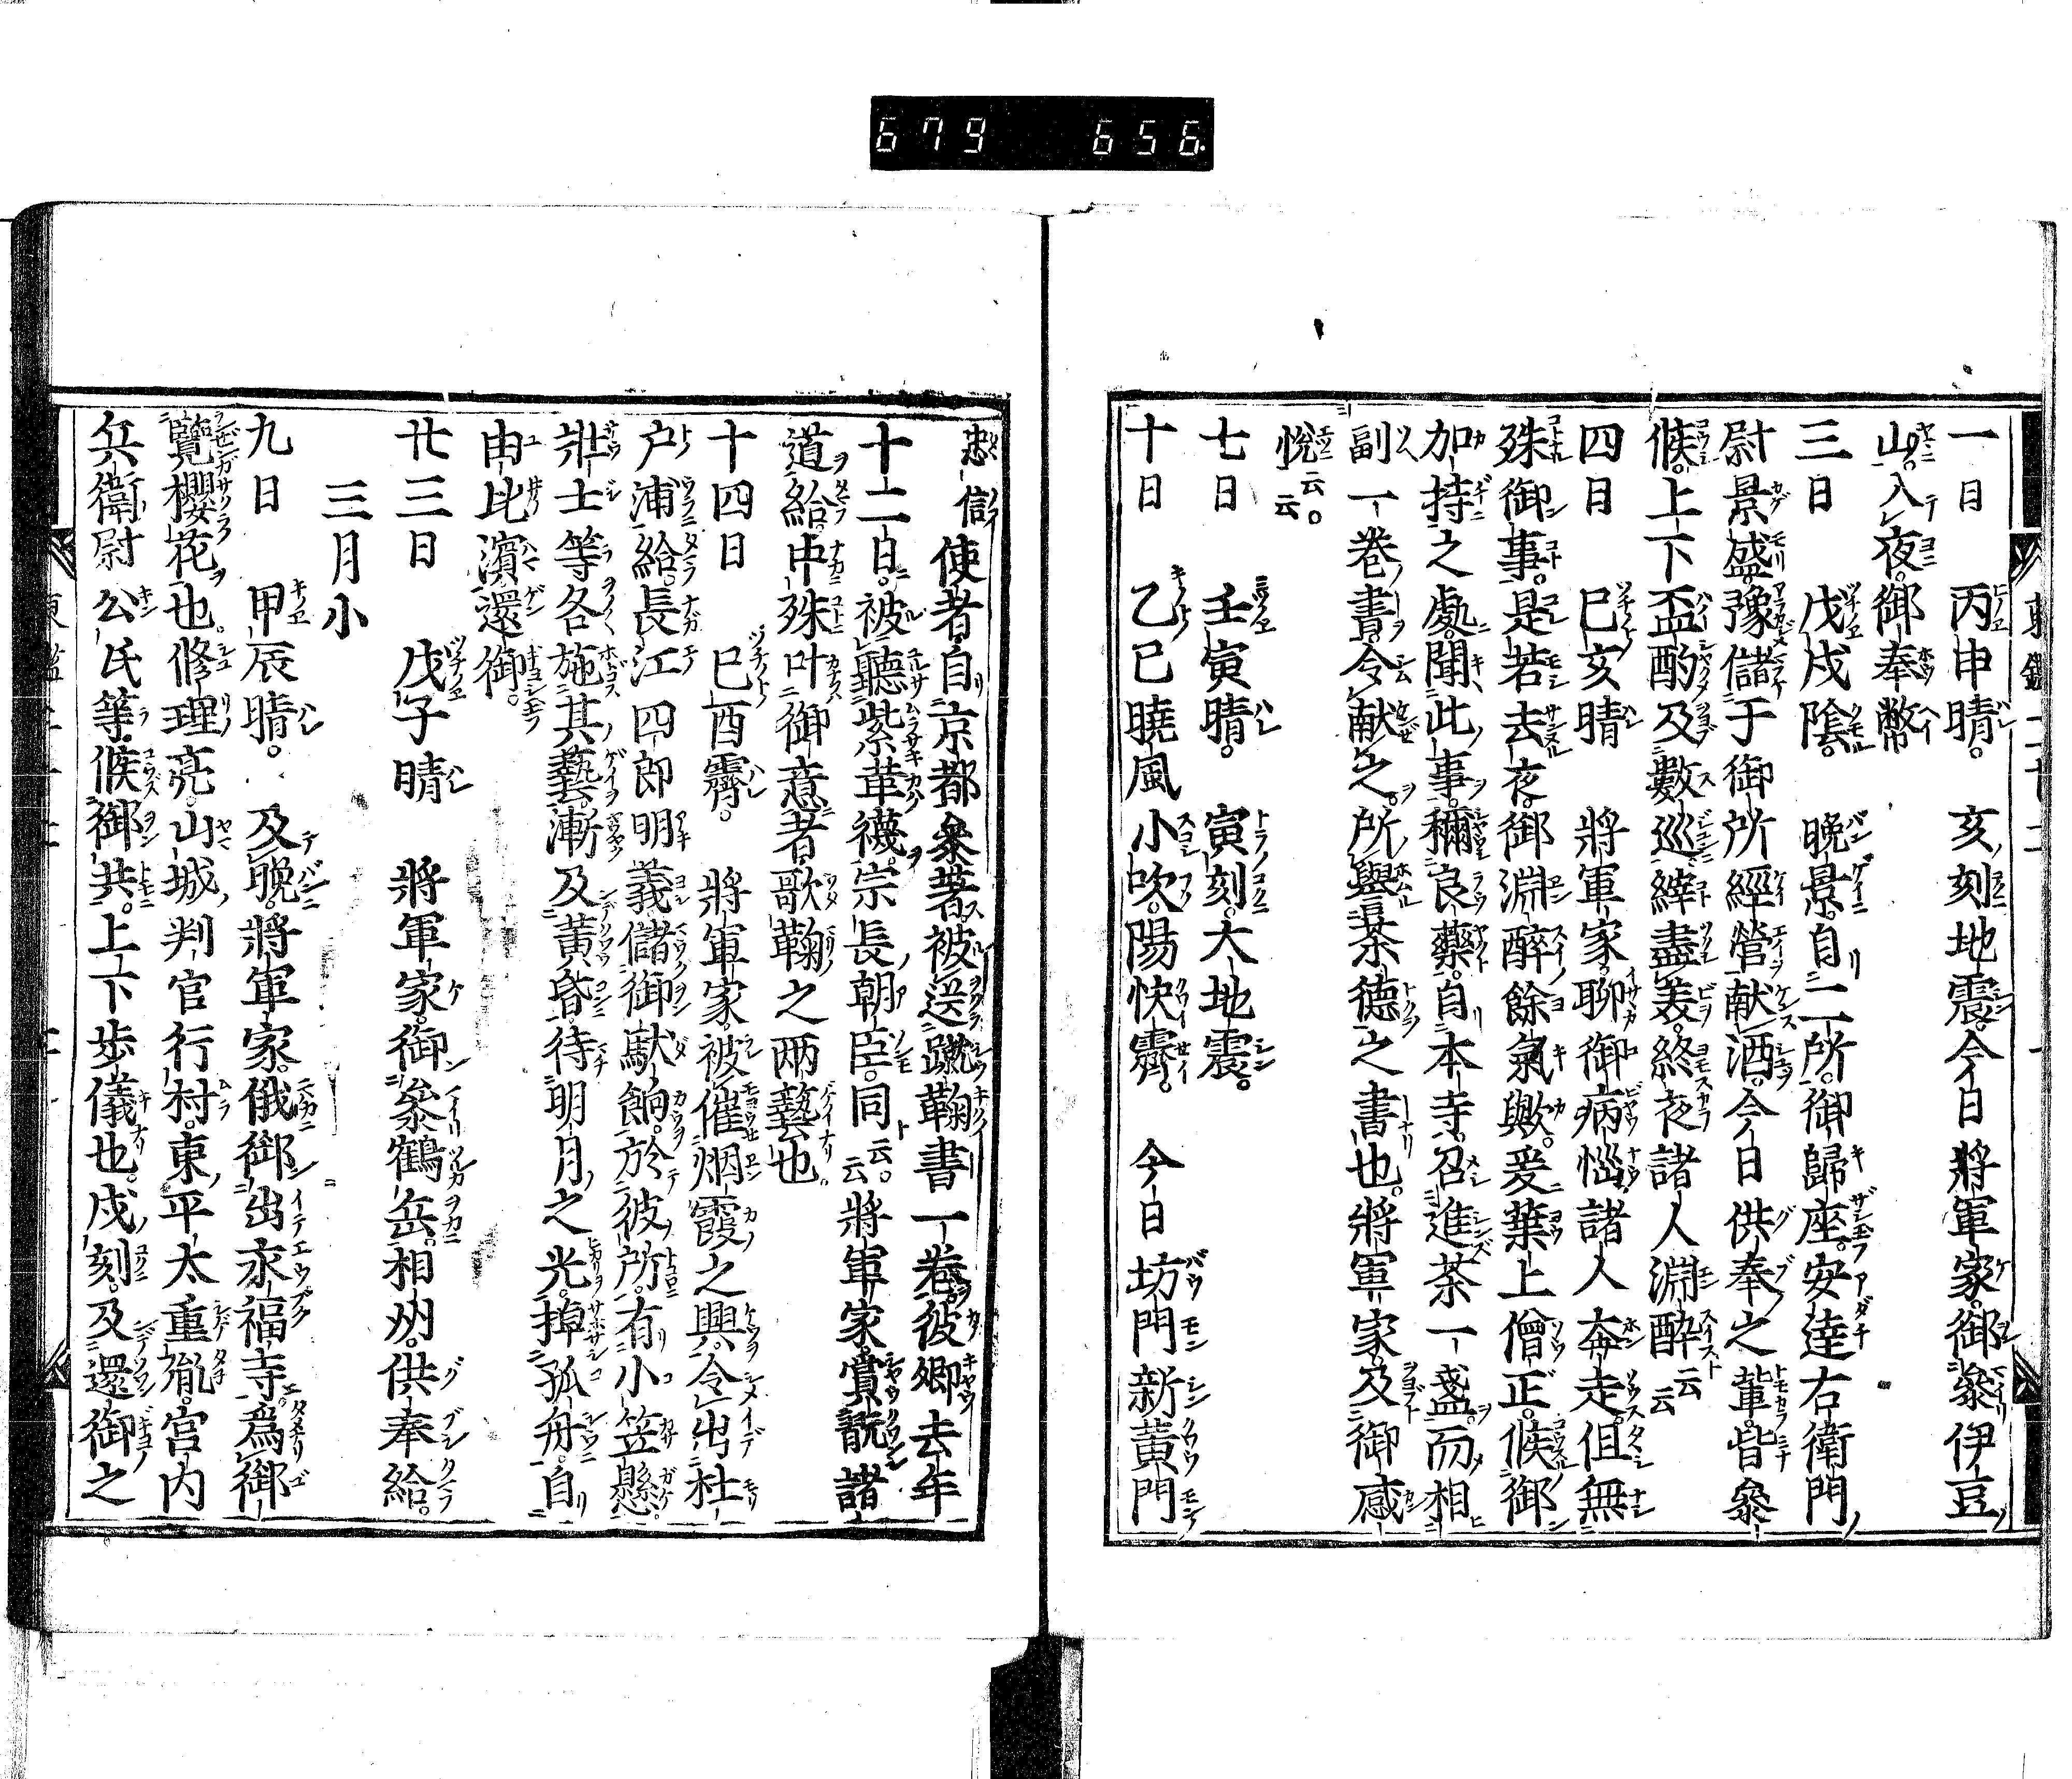 679 656
一日丙申晴。亥刻地震。今日將軍家。御參伊豆
山。入夜。御奉幣
三日戊戌陰。晩景。自二所。御歸座。安達右衛門
尉景盛。豫儲于御所經營献酒。今日供奉之輩。皆參
候。上下盃酌及數巡。縡盡美。終夜諸人淵醉云云
四日己亥晴將軍家。聊御病惱諸人奔走。但無
殊御事。是若去夜。御淵醉餘氣歟。爰葉上僧正。候御
加持之處。聞此事。稱良藥。自本寺。召進茶一盞。而相
副一卷書。令献之。所譽茶德之書也。將軍家及御感
悅云云。
七日壬寅晴。寅刻。大地震。
十日乙巳曉風小吹。陽快霽。今日坊門新黄門
忠信使者。自京都參著。被送蹴鞠書一卷。彼卿去年
十二日。被聽紫革襪。宗長朝臣。同云云。將軍家。賞翫諸
道給。中殊叶御意者。歌鞠之兩藝也。
十四日己酉霽。將軍家。被催烟霞之興。令出杜
戸浦給。長江四郎明義儲御駄餉。於彼所。有小笠懸。
壯士等各施其藝。漸及黄昏。待明月之光。掉孤舟。自
由比濱還御。
廿三日戊子晴將軍家。御參鶴岳。相州。供奉給。
三月小
九日甲辰晴。及晩。將軍家。俄御出永福寺。爲御
覽櫻花也。修理亮。山城判官行村。東平太重胤。宮内
兵衛尉公氏等。候御共。上下歩儀也。戌刻。及還御之